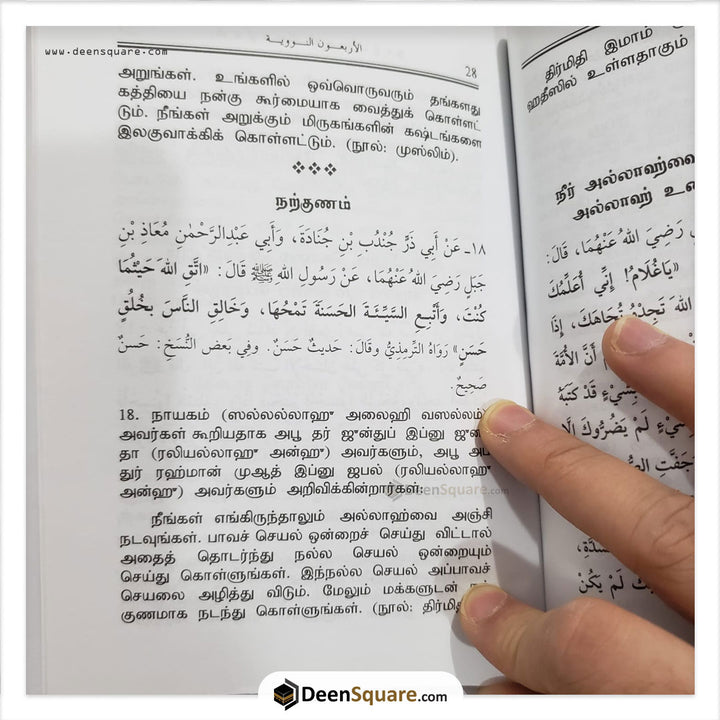 www.deensquare.com
الأربعون النووية
28
அறுங்கள். உங்களில் ஒவ்வொருவரும் தங்களது
கத்தியை நன்கு கூர்மையாக வைத்துக் கொள்ளட்
டும். நீங்கள் அறுக்கும் மிருகங்களின் கஷ்டங்களை
இலகுவாக்கிக் கொள்ளட்டும். (நூல்: முஸ்லிம்).
நற்குணம்
١٨ـ عَنْ أَبِي ذَرٍّ جُنْدُبِ بْنِ جُنَادَةَ، وَأَبِي عَبْدِالرَّحْمٰنِ مُعَاذِ بْنِ
جَبَلٍ رَضِيَ اللهُ عَنْهُمَا، عَنْ رَسُولِ اللهِ ﷺ قَالَ: «اتَّقِ اللهَ حَيْثُمَا
كُنْتَ، وَأَتْبِعِ السَّيِّئَةَ الحَسَنَةَ تَمْحُهَا، وَخَالِقِ النَّاسَ بِخُلُقٍ
حَسَنٍ» رَوَاهُ التِّرْمِذِيُّ وقَالَ: حَدِيثٌ حَسَنٌ. وفِي بَعضِ النُّسَخِ: حَسَنٌ
صَحِيحٌ.
18. நாயகம் (ஸல்லல்லாஹு அலைஹி வஸல்லம்)
அவர்கள் கூறியதாக அபூ தர் ஜுன்துப் இப்னு ஜுன
தா (ரலியல்லாஹு அன்ஹு) அவர்களும், அபூ அப்
துர் ரஹ்மான் முஆத் இப்னு ஜபல் (ரலியல்லாஹு
அன்ஹு) அவர்களும் அறிவிக்கின்றார்கள்:
DeenSquare.com
நீங்கள் எங்கிருந்தாலும் அல்லாஹ்வை அஞ்சி
நடவுங்கள். பாவச் செயல் ஒன்றைச் செய்து விட்டால்
அதைத் தொடர்ந்து நல்ல செயல் ஒன்றையும்
செய்து கொள்ளுங்கள். இந்நல்ல செயல் அப்பாவச்
செயலை அழித்து விடும். மேலும் மக்களுடன் நற்
குணமாக நடந்து கொள்ளுங்கள். (நூல்: திர்மி
திர்மிதி இமாம்
ஹதீஸில் உள்ளதாகும்
நீர் அல்லாஹ்வை
அல்லாஹ் உன
رَضِيَ اللهُ عَنْهُمَا، قَالَ:
«يَاغُلَامُ! إِنِّي أُعَلِّمُكَ
اللهَ تَجِدْهُ تُجَاهَكَ، إِذَا
أَنَّ الأُمَّةَ
بِشَيْءٍ قَدْ كَتَبَهُ
لَمْ يَضُرُّوكَ إِلَّا
لَمْ يَكُنْ
DeenSquare.com